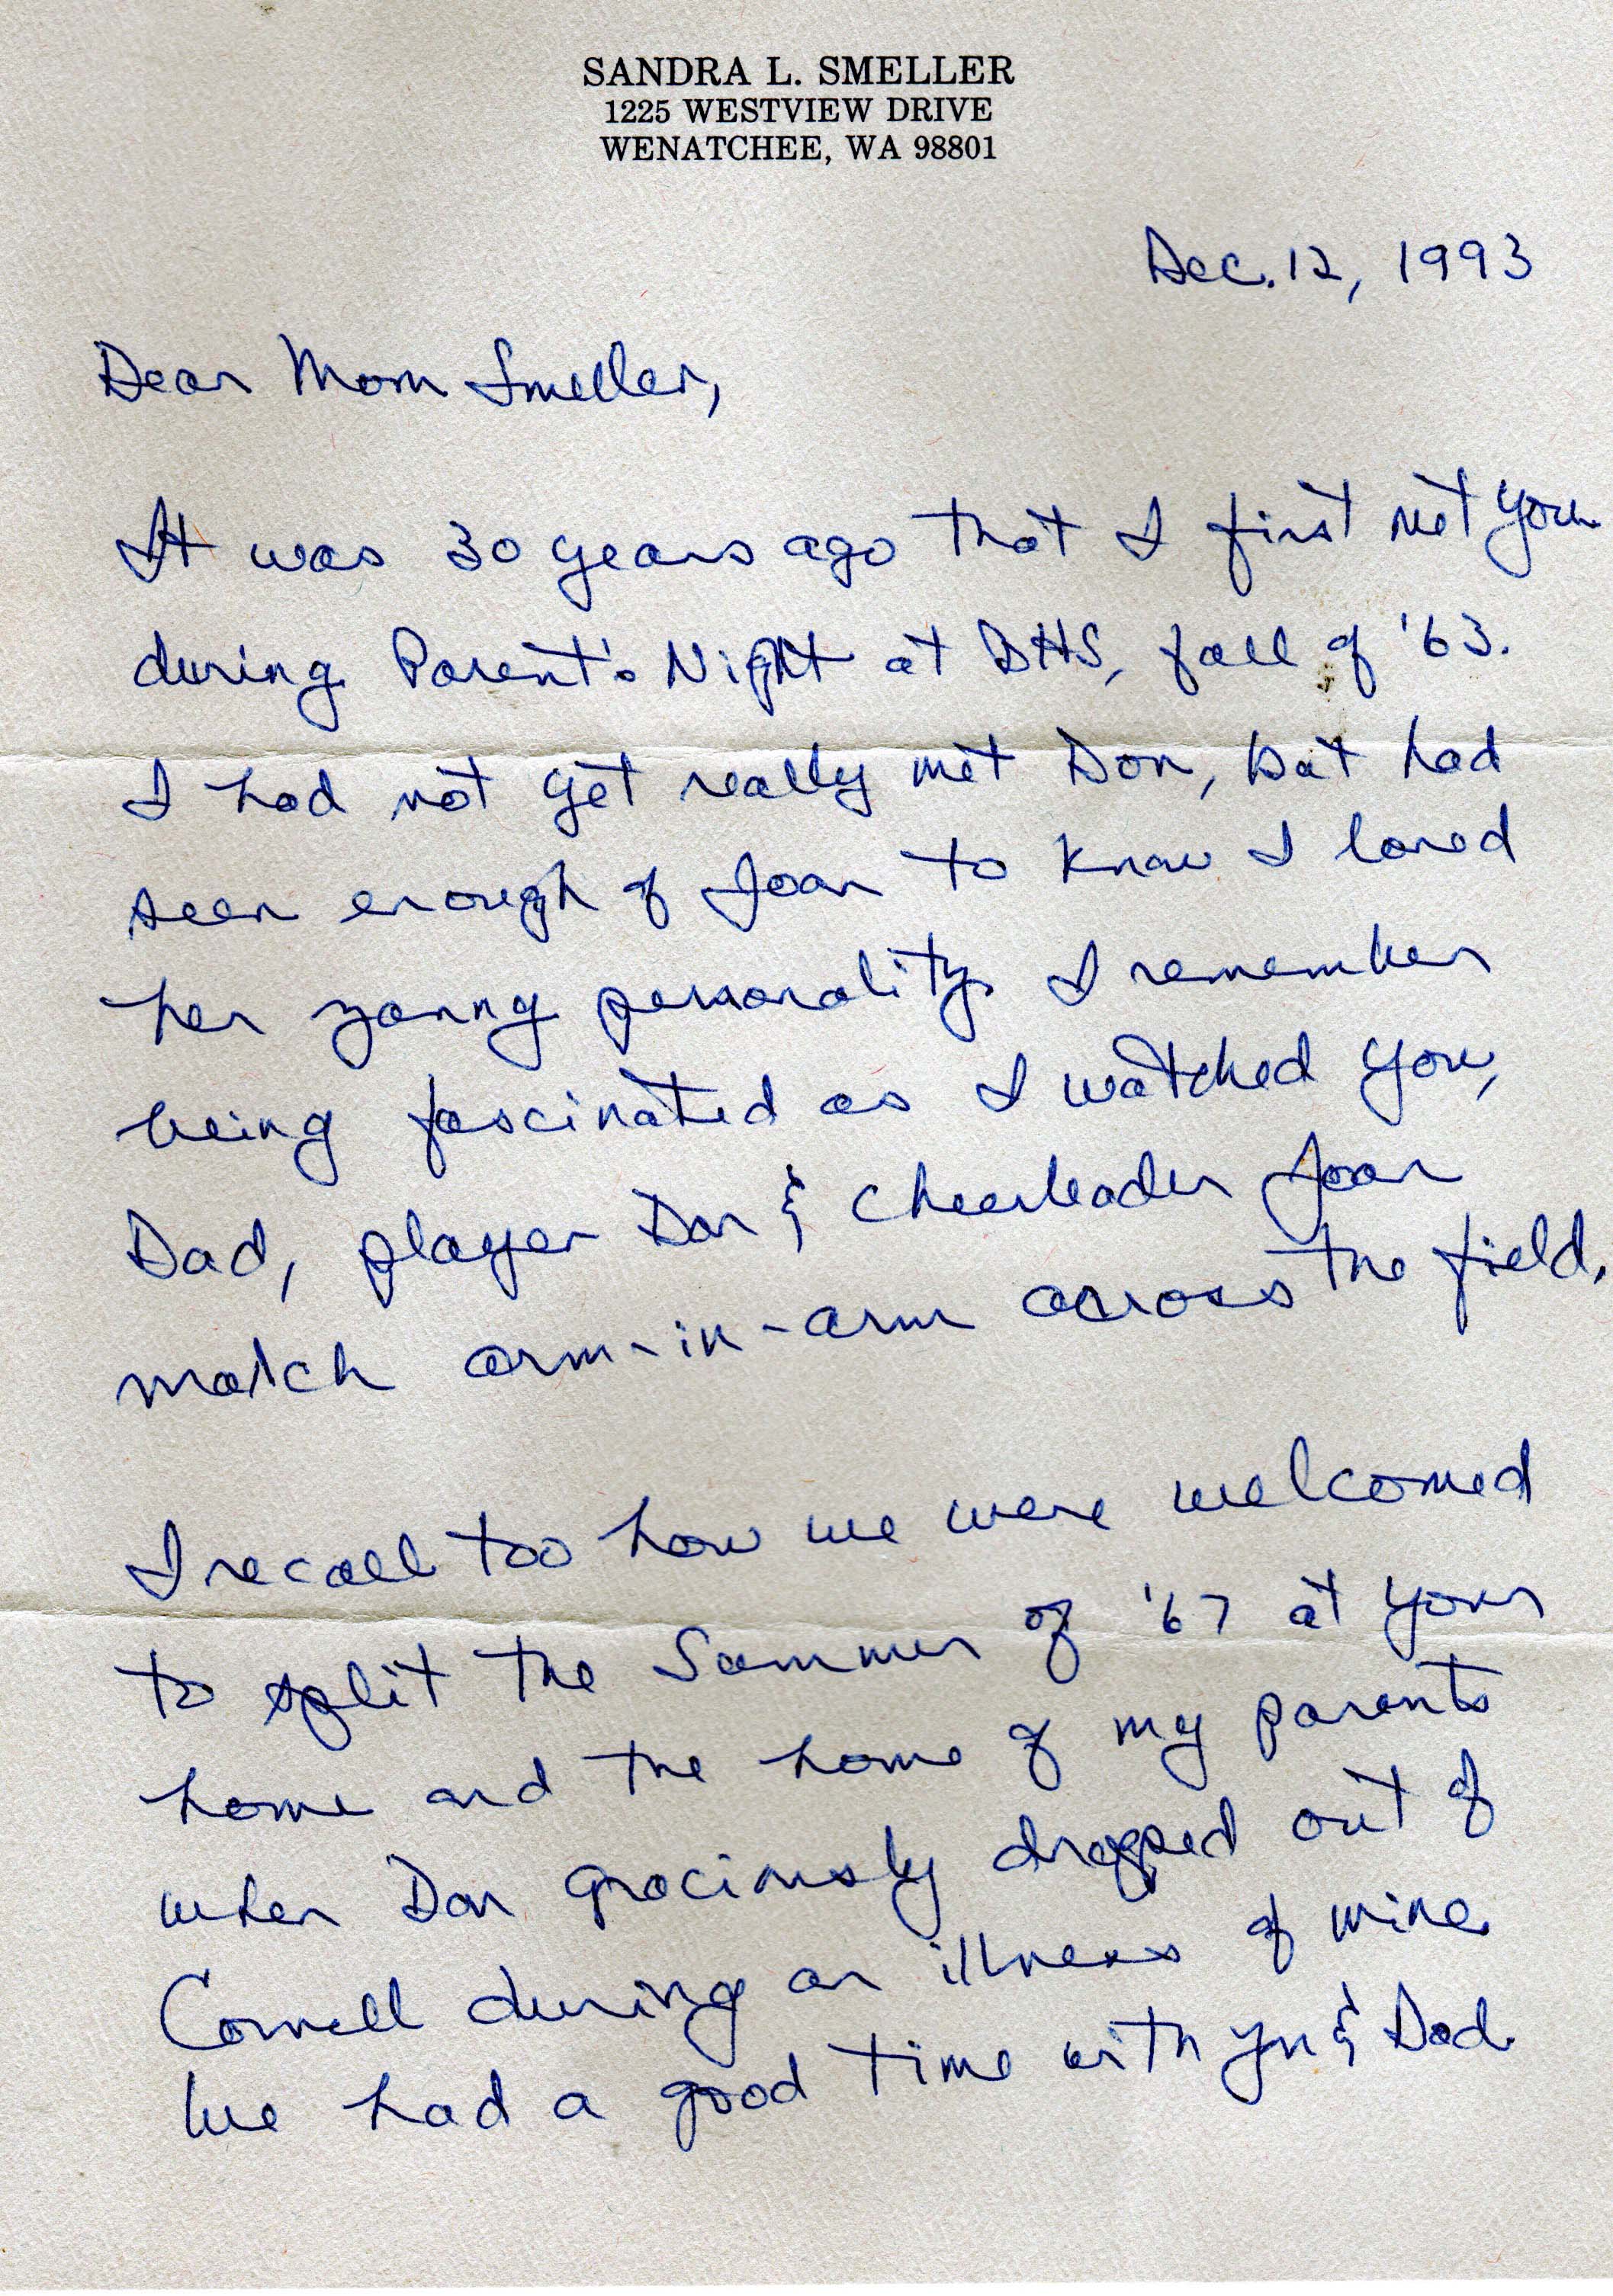 SANDRA L. SMELLER
1225 WESTVIEW DRIVE
WENATCHEE, WA 98801
Dec. 12, 1993
Dear Mom Smeller,
It was 30 years ago that I first met you
during Parent's Night at BHS, fall of '63.
I had not yet really met Don, but had
seen enough of Joan to know I loved
her young personality. I remember
being fascinated as I watched you,
Dad, player Don & cheerleader Joan
march arm-in-arm across the field.
I recall too how we were welcomed
to split the Summer of '67 at your
home and the home of my parents
when Don graciously dropped out of
Cornell during an illness of mine.
We had a good time with you & Dad